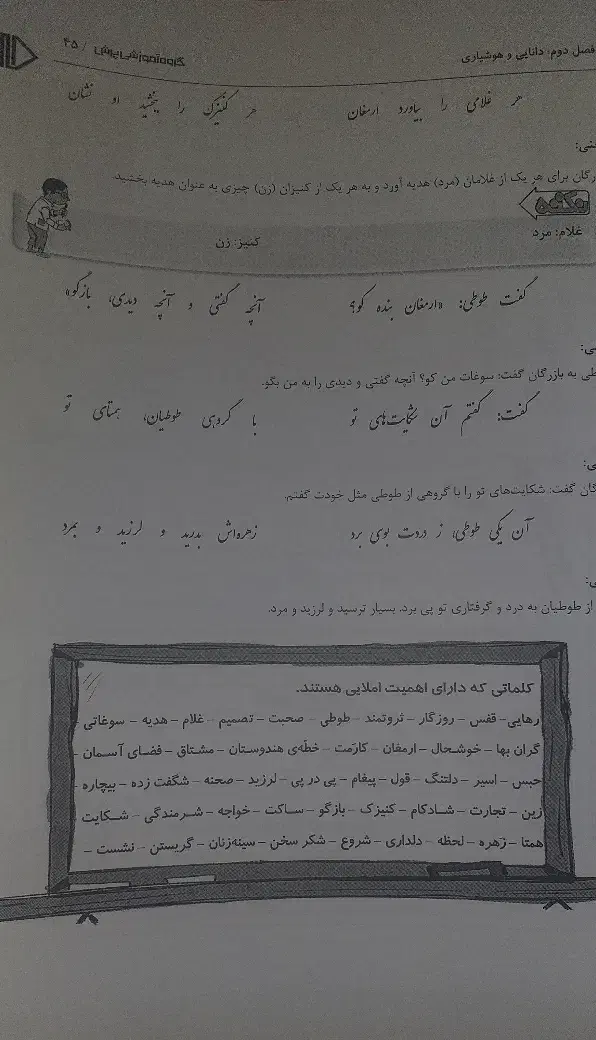 فصل دوم: دانایی و هوشیاری
گروه آموزشی پرش / ۴۵
هر غلامی را بیاورد ارمغان هر کنیزک را ببخشید او نشان
رگان برای هر یک از غلامان (مرد) هدیه آورد و به هر یک از کنیزان (زن) چیزی به عنوان هدیه بخشید.
غلام: مرد کنیز: زن
گفت طوطی: «ارمغان بنده کو؟ آنچه گفتی و آنچه دیدی، بازگو»
طی به بازرگان گفت: سوغات من کو؟ آنچه گفتی و دیدی را به من بگو.
گفت: گفتم آن شکایت‌های تو با گروهی طوطیان، همتای تو
گان گفت: شکایت‌های تو را با گروهی از طوطی مثل خودت گفتم.
آن یکی طوطی، ز دردت بوی برد زهره‌اش بدرید و لرزید و بمرد
از طوطیان به درد و گرفتاری تو پی برد. بسیار ترسید و لرزید و مرد.
کلماتی که دارای اهمیت املایی هستند.
رهایی – قفس – روزگار – ثروتمند – طوطی – صحبت – تصمیم – غلام – هدیه – سوغاتی –
گران بها – خوشحال – ارمغان – کارَمت – خطّه‌ی هندوستان – مشتاق – فضای آسمان –
حبس – اسیر – دلتنگ – قول – پیغام – پی در پی – لرزید – صحنه – شگفت زده – بیچاره –
زین – تجارت – شادکام – کنیزک – بازگو – ساکت – خواجه – شرمندگی – شکایت –
همتا – زهره – لحظه – دلداری – شروع – شکر سخن – سینه‌زنان – گریستن – نشست –